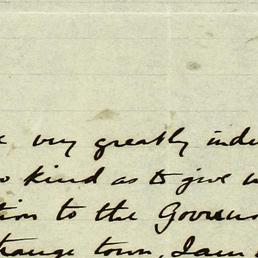 very greatly inde
o kind as to give
tion to the Governo
trange town, I am